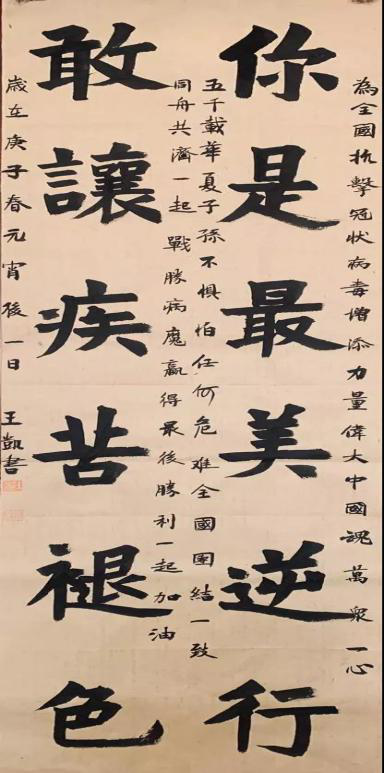 為全國抗擊冠狀病毒增添力量偉大中國魂萬眾一心
你是最美逆行
五千載華夏子孫不懼怕任何危難全國團結一致
同舟共濟一起戰勝病魔贏得最後勝利一起加油
敢讓疾苦褪色
歲在庚子春元宵後一日王凱書